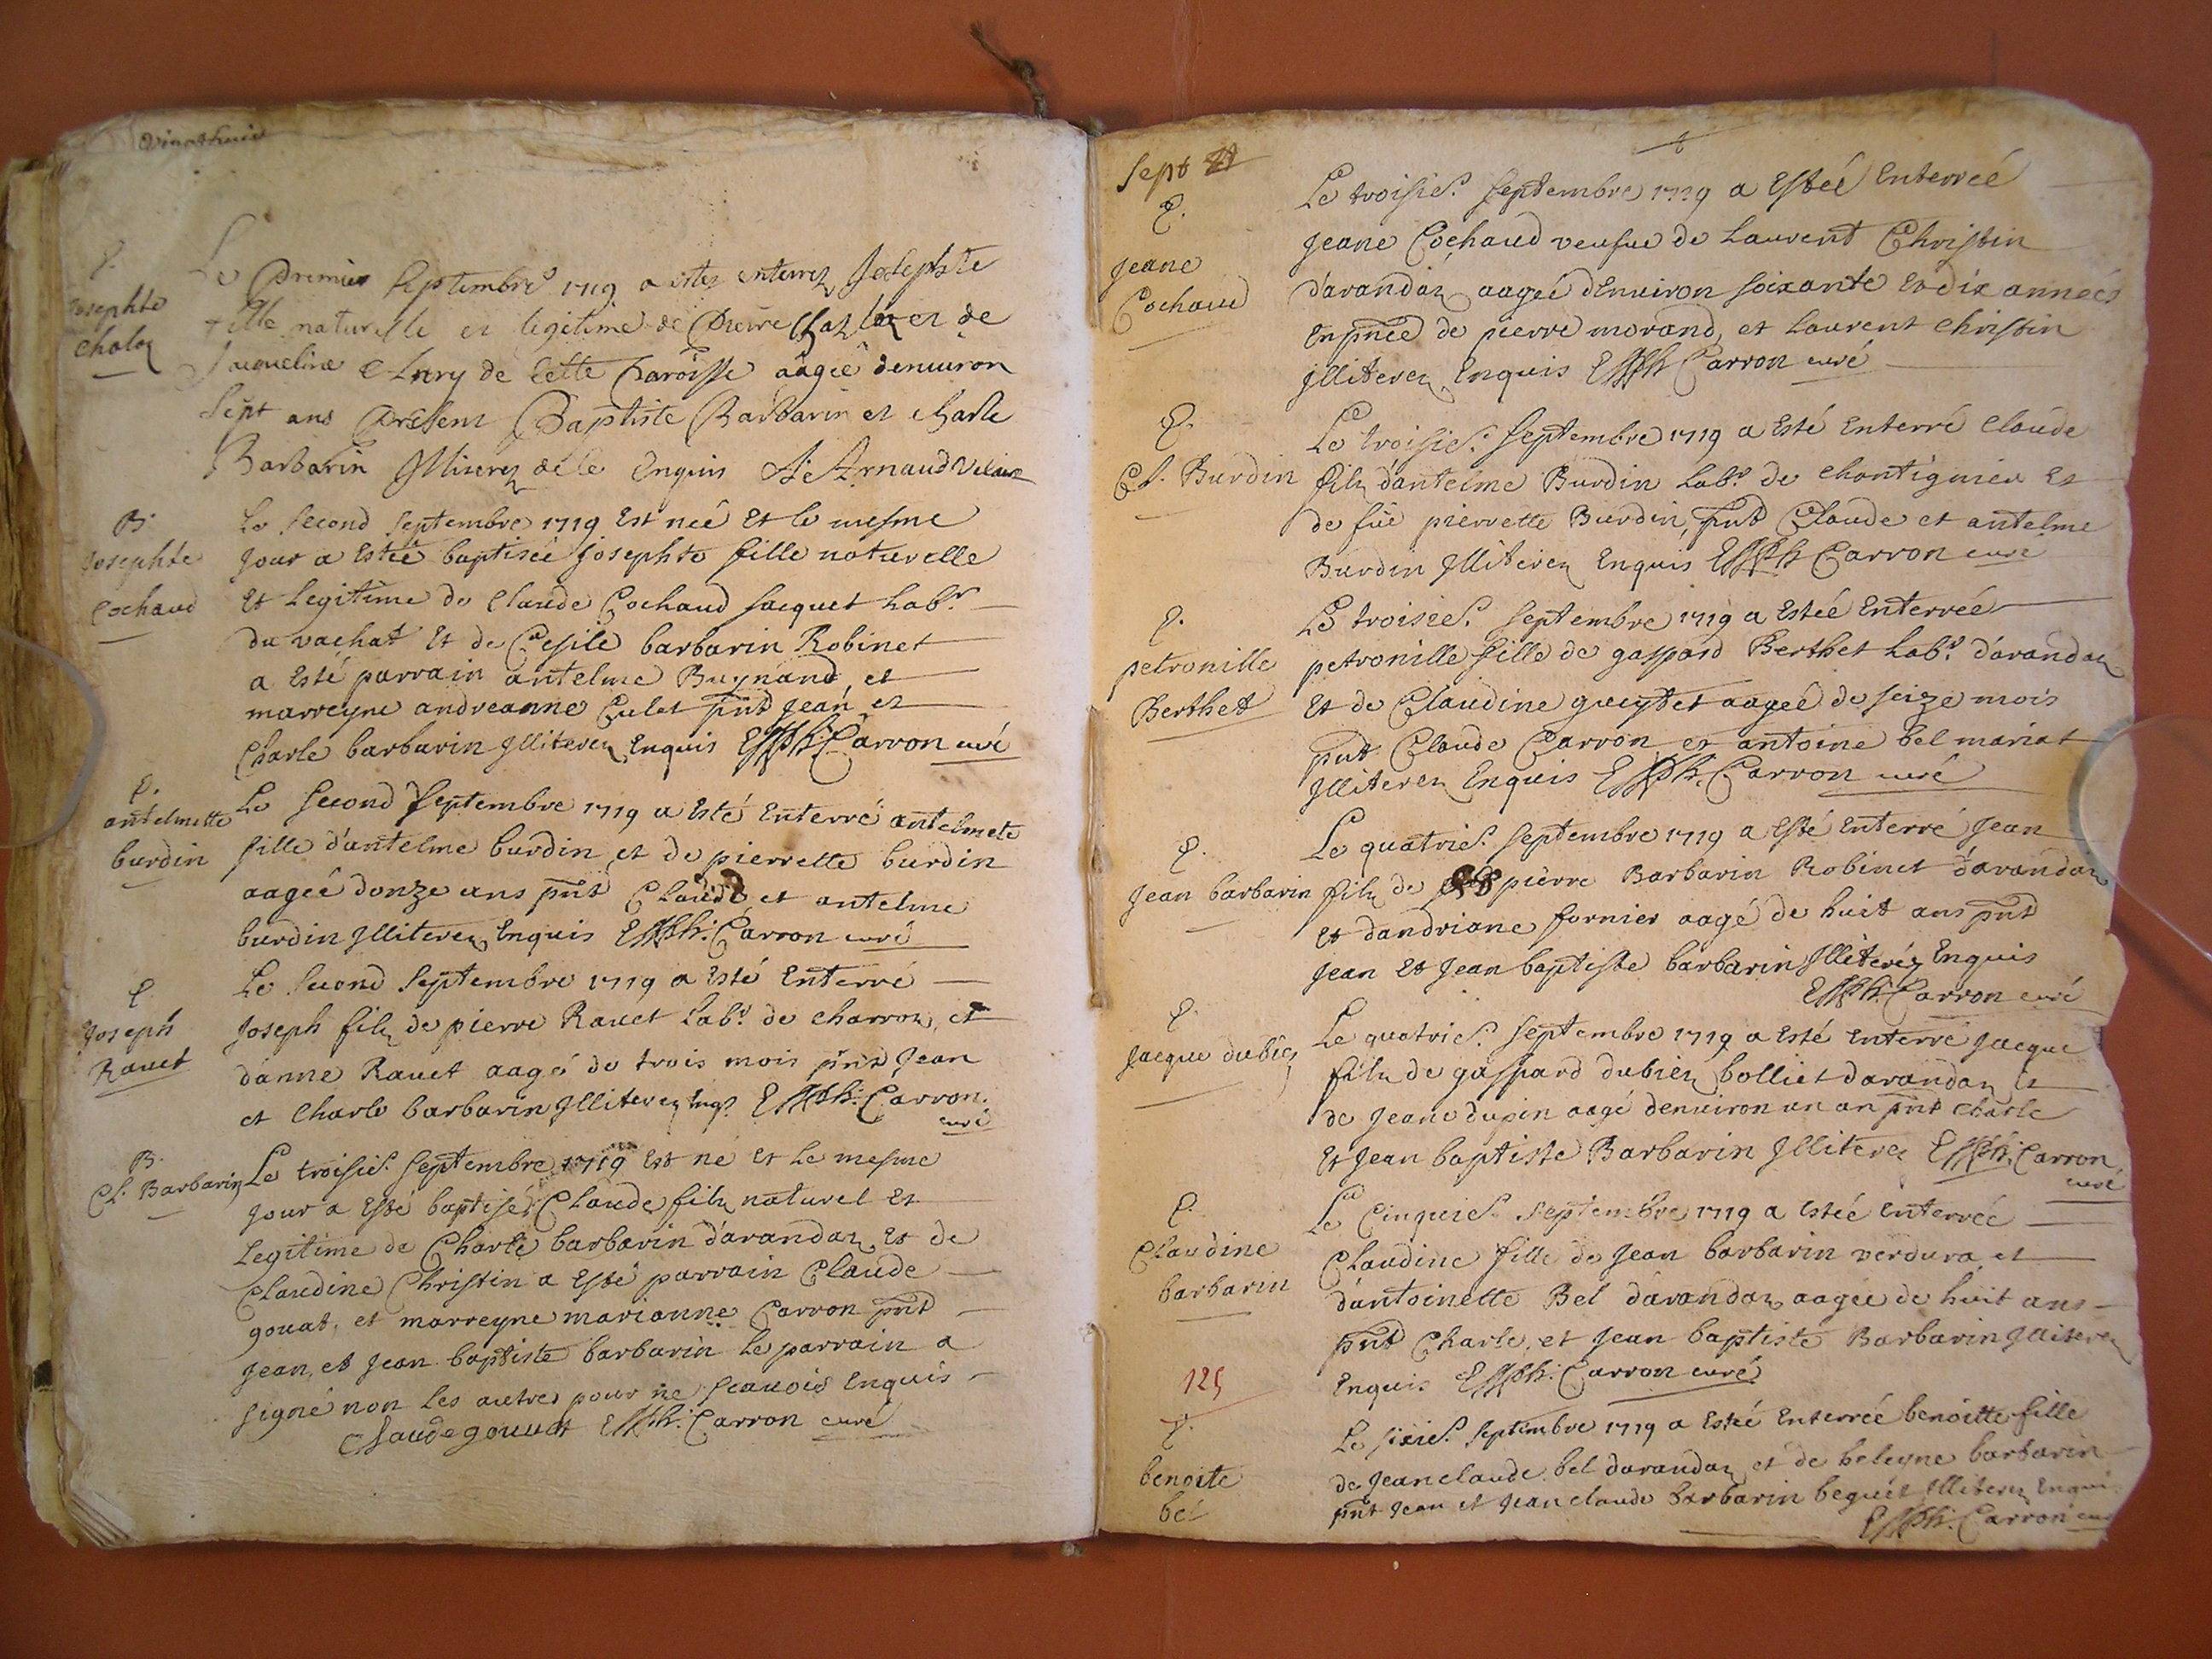 vingthuit
E.
Josephte
Chaloz
Le Premier Septembre 1719 a estez enterrez Josephte
fille naturelle et legitime de Pierre et de
Jaqueline de Cette Paroisse aâgeê denuiron
Sept ans Present Baptiste Barbarin et Charle
Barbarin Jlliterez de le Enquis Arnaud Vicaire
B.
Josephte
Cochaud
Le second septembre 1719 Est neé Et le mesme
Jour a Esteé baptiseé Josephte fille naturelle
Et Legitime de Claude Cochaud Jacquet Labr.
du vachat Et de Cesile barbarin Robinet
a Esté parrain antelme Bugnand, et
marreyne andreanne Culet pnt Jean, et
Charle barbarin Jlliterez Enquis Carron curé
E.
antelmette
burdin
Le second septembre 1719 a Esté Enterré antelmete
fille d'antelme burdin et de pierrette burdin
aageé donze ans pnt Claude et antelme
burdin Jlliterez Enquis Carron curé
E
Joseph
Rauet
Le second septembre 1719 a Esté Enterré
Joseph filz de pierre Rauet Labr. de Charron, et
d'anne Rauet aagé de trois mois pnt Jean
et Charle barbarin Jlliterez Enqs Carron.
curé
B.
Cl. Barbarin
Le troisie. septembre 1719 Est né Et Le mesme
Jour a Esté baptisé Claude filz naturel Et
Legitime de Charle barbarin d'arandaz Et de
Claudine Christin a Esté parrain Claude
gouat, et marreyne marianne Carron pnt
Jean, et Jean baptiste barbarin le parrain a
signé non les autres pour ne scauoir Enquis
Claude gouuat Carron curé
Sept
E.
Jeane
Cochaud
Le troisie. septembre 1719 a Esteé Enterreé
Jeane Cochaud veufue de Laurent Christin
d'arandaz aageé d'Enuiron soixante et dix anneés
En pnce de pierre morand, et Laurent Christin
Jlliterez Enquis Carron curé
E.
Cl. Burdin
Le troisie. septembre 1719 a Esté Enterré Claude
filz d'antelme Burdin Labr. de Chantiguieu Et
de fue pierrette Burdin, pnt Claude et antelme
Burdin Jlliterez Enquis Carron curé
E.
petronille
Berthet
Le troisie. septembre 1719 a Esteé Enterreé
petronille fille de gaspard Berthet Labr. d'arandaz
Et de Claudine gueytet aageé de seize mois
pnt Claude Carron et antoine bel mariat
Jlliterez Enquis Carron curé
E.
Jean barbarin
Le quatrie. septembre 1719 a Esté Enterré Jean
filz de pierre Barbarin Robinet d'arandaz
Et dandriane fornier aagé de huit ans pnt
Jean Et Jean baptiste barbarin Jlliteréz Enquis
Carron curé
E.
Jacque dubiez
Le quatrie. septembre 1719 a Esté Enterré Jacque
filz de gaspard dubiez bolliet darandaz Et
de Jeane dupin aagé denuiron un an pnt Charle
Et Jean baptiste Barbarin Jlliterez Carron
curé
E.
Claudine
barbarin
Le Cinquie. septembre 1719 a Esteé Enterreé
Claudine fille de Jean barbarin verdura, et
d'antoinette Bel d'arandaz aageé de huit ans
pnt Charle, et Jean baptiste Barbarin Jlliterez
Enquis Carron curé
125
E.
benoite
bel
Le sixie. septembre 1719 a Esteé Enterreé benoitte fille
de Jean claude bel darandaz et de heleyne barbarin
pnt Jean et Jean claude barbarin beguet Jlliterez Enqui
Carron cur